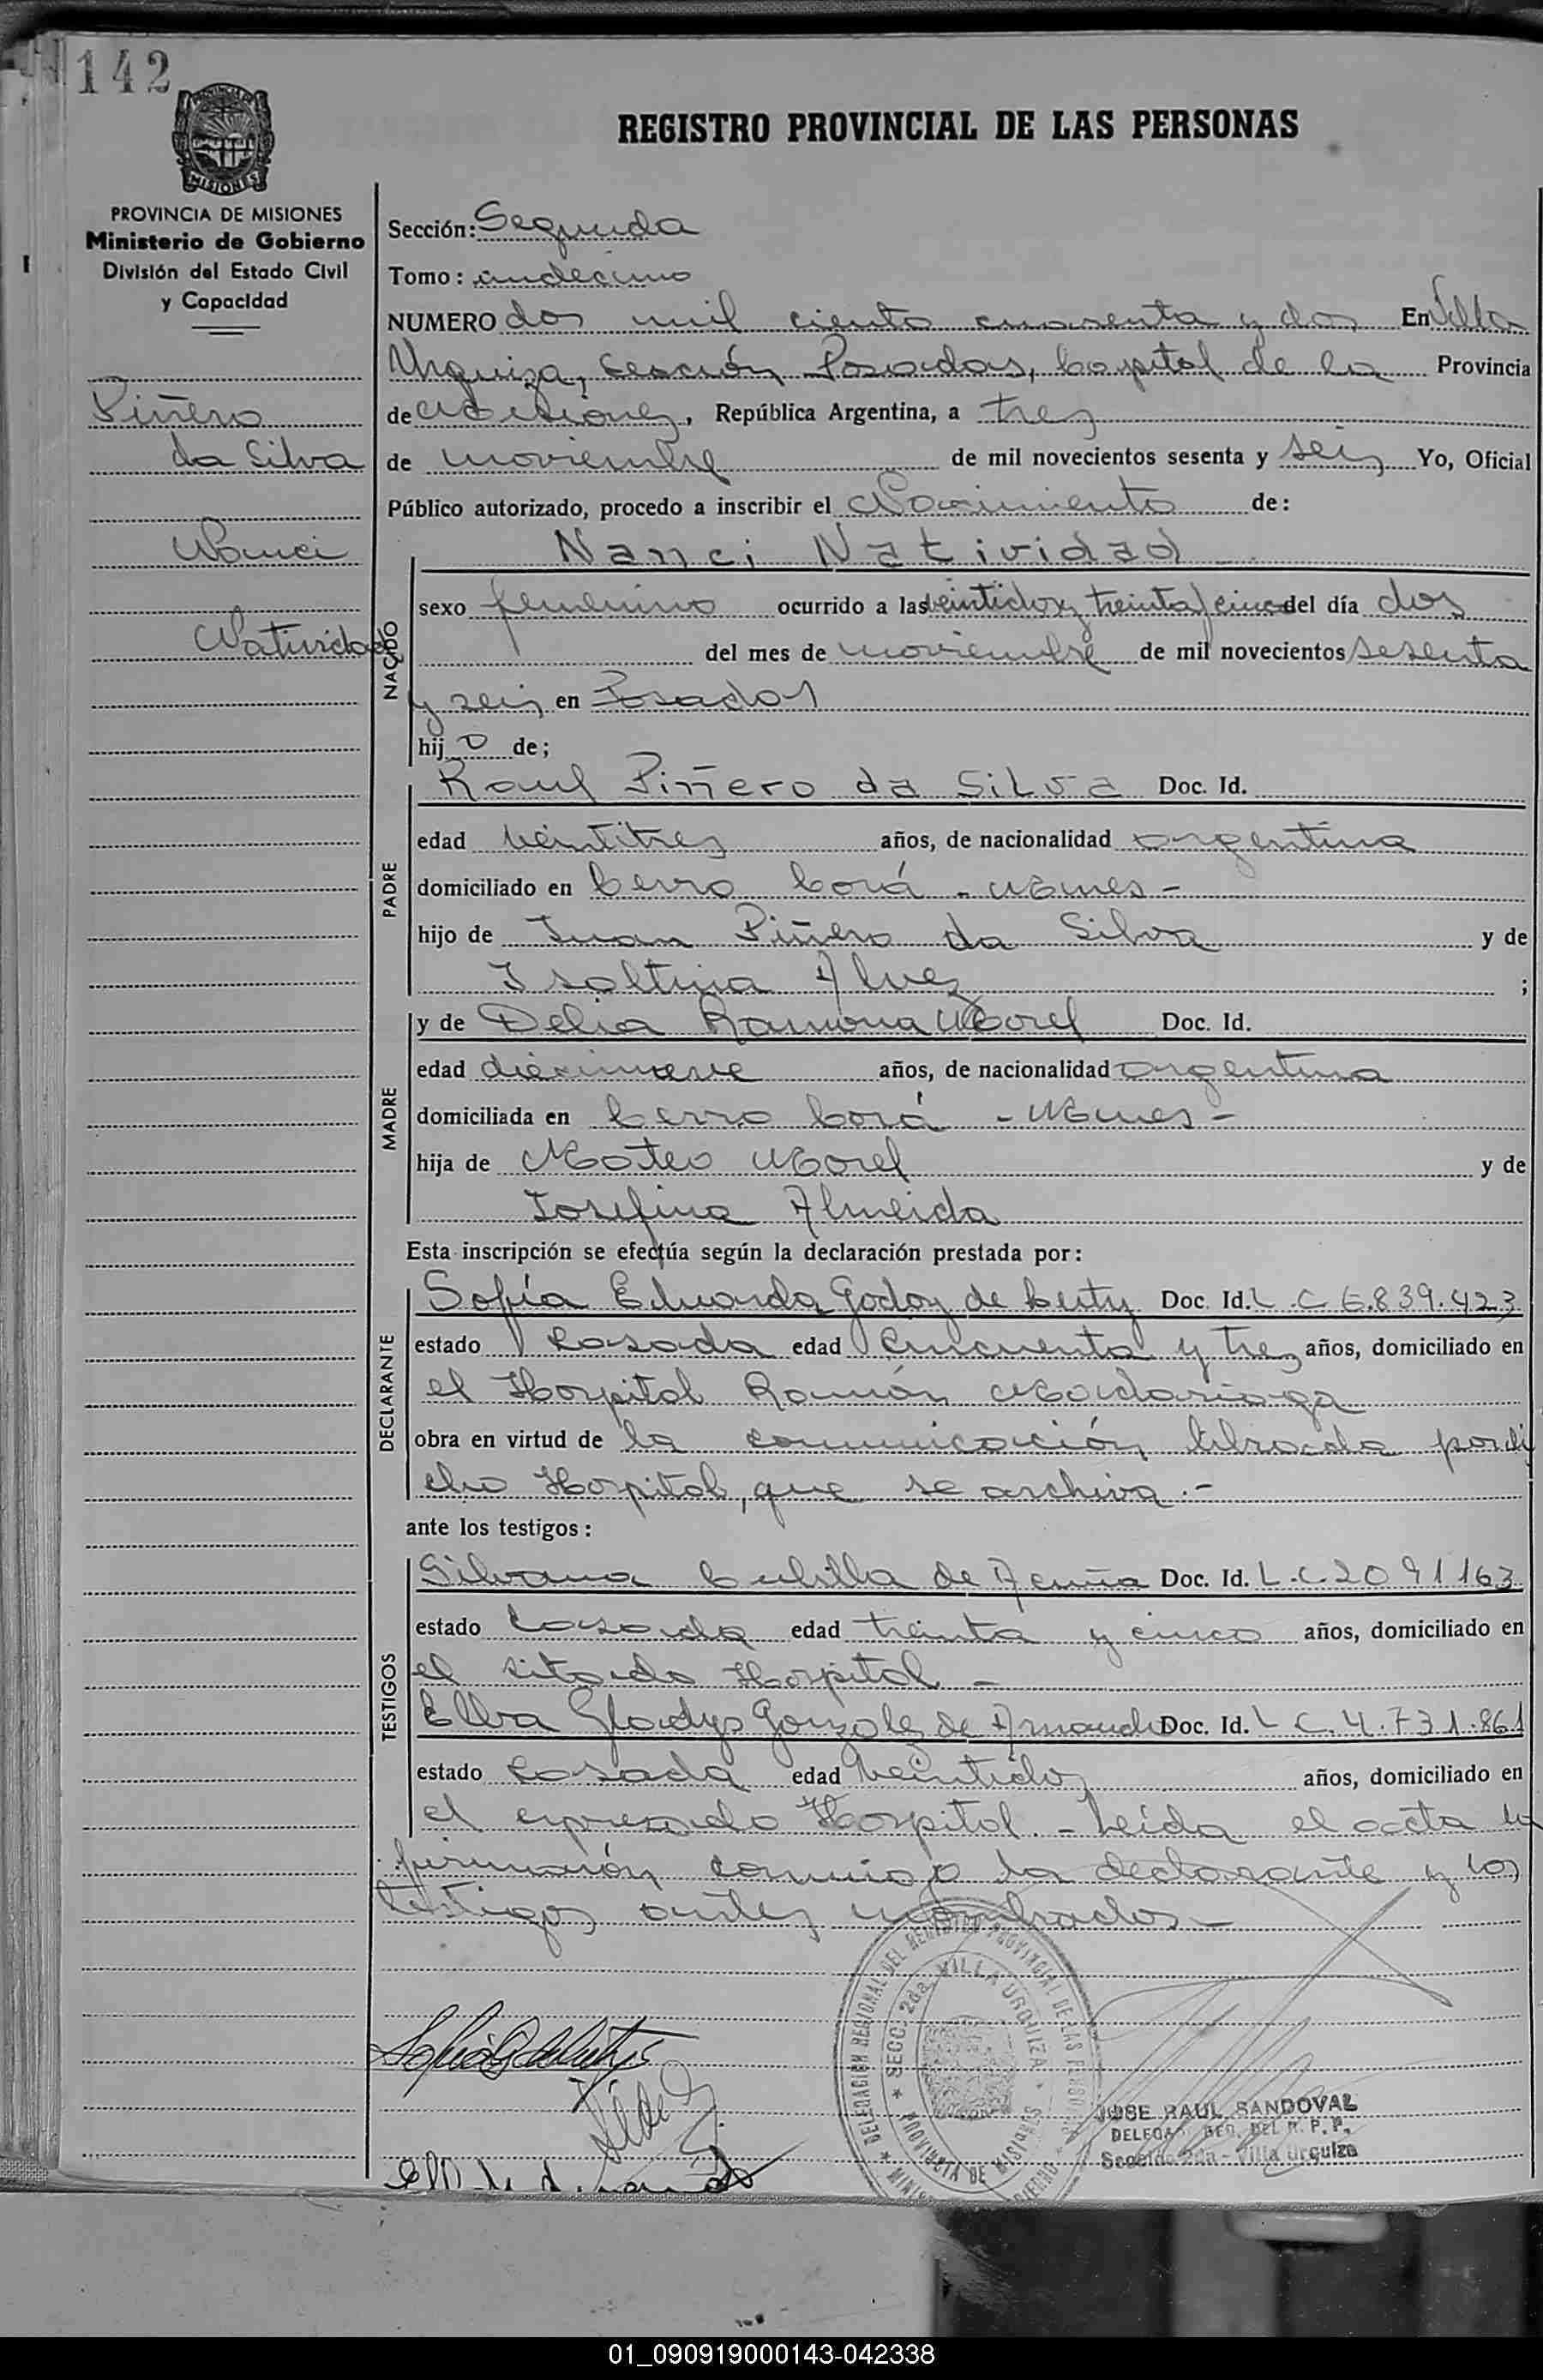 142
REGISTRO PROVINCIAL DE LAS PERSONAS
MISIONES
PROVINCIA DE MISIONES
Ministerio de Gobierno
División del Estado Civil
y Capacidad
Piñero
da Silva
Nanci
Natividad
Sección: Segunda
Tomo: undecimo
NUMERO dos mil ciento cuarenta y dos En Villa
Urquiza, sección Posadas, Capital de la Provincia
de Misiones, República Argentina, a tres
de noviembre de mil novecientos sesenta y seis Yo, Oficial
Público autorizado, procedo a inscribir el Nacimiento de:
NACIDO
Nanci Natividad
sexo femenino ocurrido a las veintidos y treinta y cinco del día dos
del mes de noviembre de mil novecientos sesenta
y seis en Posadas
hija de;
PADRE
Raul Piñero da Silva Doc. Id.
edad veintitres años, de nacionalidad argentina
domiciliado en Cerro Corá - Mnes -
hijo de Juan Piñero da Silva y de
Isoltina Alvez ;
MADRE
y de Delia Ramona Morel Doc. Id.
edad diecinueve años, de nacionalidad argentina
domiciliada en Cerro Corá - Mnes -
hija de Mateo Morel y de
Josefina Almeida
Esta inscripción se efectúa según la declaración prestada por:
DECLARANTE
Sofía Eduarda Godoy de Doc. Id. L.C 6.839.423
estado casada edad cincuenta y tres años, domiciliado en
el Hospital Ramón Madariaga
obra en virtud de la comunicación librada por di
cho Hospital, que se archiva.-
ante los testigos:
TESTIGOS
Silvana Cubilla de Acuña Doc. Id. L.C 2091163
estado casada edad treinta y cinco años, domiciliado en
el sitado Hospital -
Elba Gladys Gonzalez de Doc. Id. L C. 4.731.861
estado casada edad veintidos años, domiciliado en
el expresado Hospital. - Leída el acta la
firmarón conmigo la declarante y los
testigos antes nombrados -
DELEGACION REGIONAL DEL REGISTRO PROVINCIAL DE LAS PERSONAS
SECC. 2da. VILLA URQUIZA
PROVINCIA DE MISIONES
JOSE RAUL SANDOVAL
DELEGADO REG. DEL R. P. P.
Sección 2da - Villa Urquiza
01_090919000143-042338